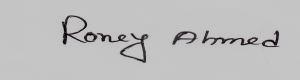 Roney Ahmed